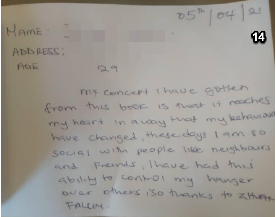 05th/04/21
14
NAME:
ADDRESS:
AGE 29
My concept I have gotten
from this book is that it reaches
my heart in away that my behaviour
have changed, these days I am so
social with people like neighbours
and friends, I have had this
ability to control my hanger
over others so thanks to
FALUN.